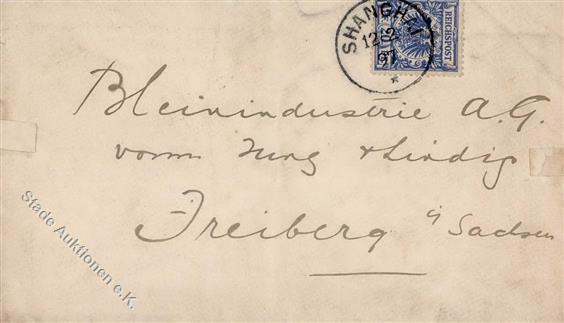 SHANGHAI
12
97
REICHSPOST
Bleiindustrie A.G.
vorm Jung & Lindig
Freiberg i/ Sachsen
Stade Auktionen e.K.